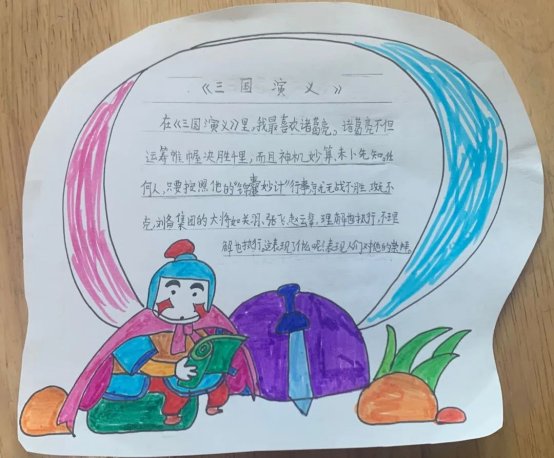 《三国演义》
在《三国演义》里,我最喜欢诸葛亮。诸葛亮不但
运筹帷幄决胜千里,而且神机妙算,未卜先知,任
何人,只要按照他的“锦囊妙计”行事,无战不胜攻无不
克,刘备集团的大将如关羽、张飞、赵云等,理解也执行,不理
解也执行,这表现了什么呢?表现人们对他的崇拜。